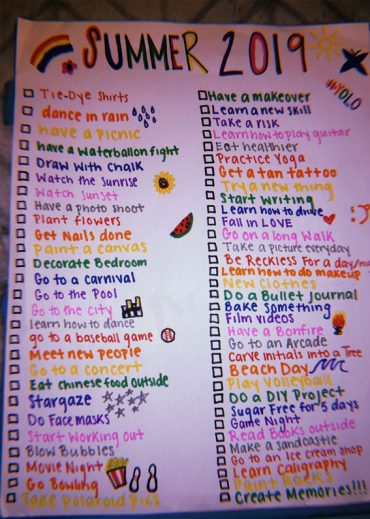 SUMMER 2019
#YOLO
Tie-Dye Shirts
dance in rain
have a picnic
have a waterballon fight
Draw with Chalk
Watch the Sunrise
Watch Sunset
Have a photo shoot
Plant flowers
Get Nails done
Paint a canvas
Decorate Bedroom
Go to a carnival
Go to the Pool
Go to the city
learn how to dance
go to a baseball game
Meet new people
Go to a concert
Eat chinese food outside
Stargaze
Do Face masks
Start Working out
Blow Bubbles
Movie Night
Go Bowling
Take polaroid pics
Have a makeover
Learn a new skill
Take a risk
Learn how to play guitar
Eat healthier
Practice Yoga
Get a tan tattoo
Try a new thing
Start writing
Learn how to drive
Fall in LOVE
Go on a long Walk
Take a picture everyday
Be Reckless For a day/
Learn how to do makeup
New Clothes
Do a Bullet journal
Bake Something
Film videos
Have a Bonfire
Go to an Arcade
Carve initials into a Tree
Beach Day
Play Volleyball
Do a DIY Project
Sugar Free for 5 days
Game Night
Read Books outside
Make a sandcastle
Go to an Ice cream shop
Learn Caligraphy
Paint Rocks
Create Memories!!!